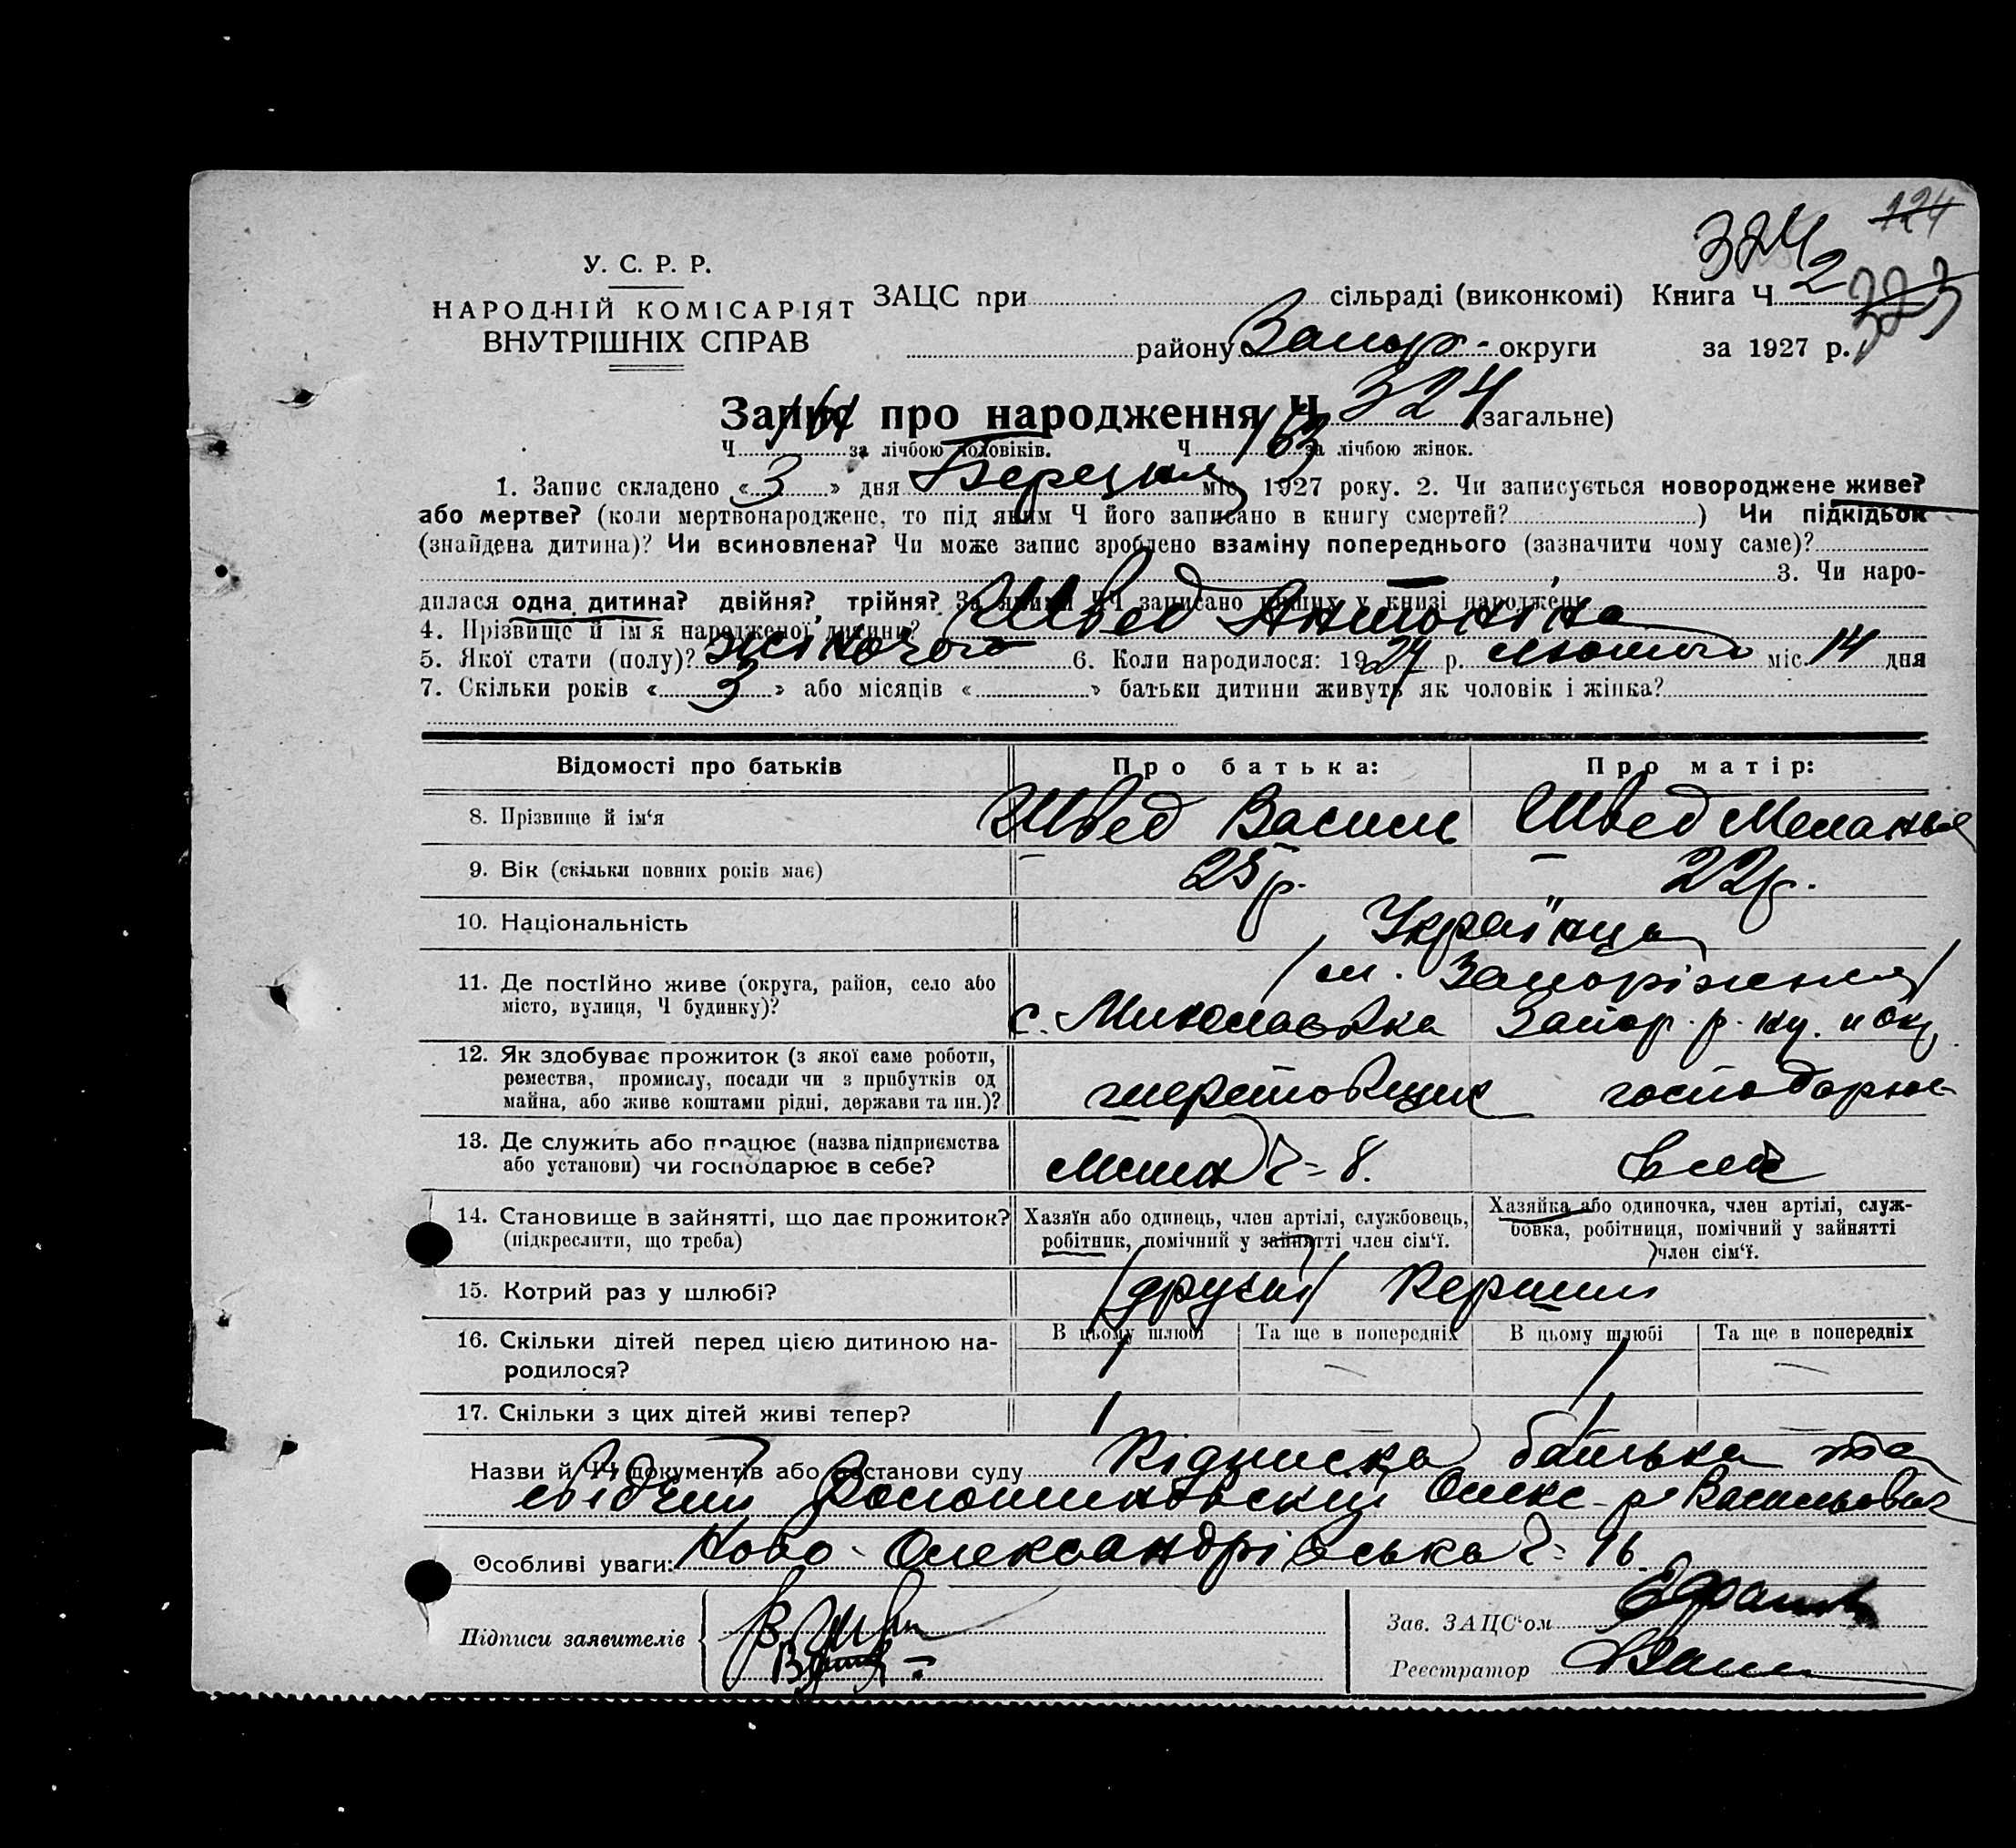 124
324
У. С. Р. Р.
НАРОДНІЙ КОМІСАРІЯТ
ВНУТРІШНІХ СПРАВ
ЗАЦС при сільраді (виконкомі) Книга Ч 2 323
району Запор. округи за 1927 р.
Запис про народження Ч 324 (загальне)
Ч 161 за лічбою чоловіків. Ч 163 за лічбою жінок.
1. Запис складено « 3 » дня Березня міс. 1927 року. 2. Чи записується новороджене живе?
або мертве? (коли мертвонароджене, то під яким Ч його записано в книгу смертей? ) Чи підкідьок
(знайдена дитина)? Чи всиновлена? Чи може запис зроблено взаміну попереднього (зазначити чому саме)?
3. Чи наро-
дилася одна дитина? двійня? трійня? За якими ЧЧ записано инших у книзі народжень
4. Прізвище й ім'я народженої дитини? Швед Антоніна
5. Якої стати (полу)? жіночого 6. Коли народилося: 1927 р. лютого міс. 14 дня
7. Скільки років « 3 » або місяців « » батьки дитини живуть як чоловік і жінка?
Відомості про батьків Про батька: Про матір:
8. Прізвище й ім'я Швед Василь Швед Меланья
9. Вік (скільки повних років має) 25 р. 22 р.
10. Національність Українці
11. Де постійно живе (округа, район, село або місто, вулиця, Ч будинку)? /м. Запоріжжя/
с. Миколаївка Запор. р-ну. и окр.
12. Як здобуває прожиток (з якої саме роботи,
ремества, промислу, посади чи з прибутків од
майна, або живе коштами рідні, держави та ин.)? шеретовщик господарює
13. Де служить або працює (назва підприємства
або установи) чи господарює в себе? млин Ч= 8.
14. Становище в зайнятті, що дає прожиток?
(підкреслити, що треба)
Хазяїн або одинець, член артілі, службовець,
робітник, помічний у зайнятті член сім'ї.
Хазяйка або одиночка, член артілі, служ-
бовка, робітниця, помічний у зайнятті
член сім'ї.
15. Котрий раз у шлюбі? /другий/ Перший
16. Скільки дітей перед цією дитиною на-
родилося?
В цьому шлюбі Та ще в попередніх В цьому шлюбі Та ще в попередніх
1 — 1 —
17. Скільки з цих дітей живі тепер? 1 1 —
Назви й ЧЧ документів або постанови суду Підписка батька та
Олекс-р Васильович
Особливі уваги: Ново-Олександрівська Ч= 16
Підписи заявителів
Зав. ЗАЦС'ом
Реєстратор